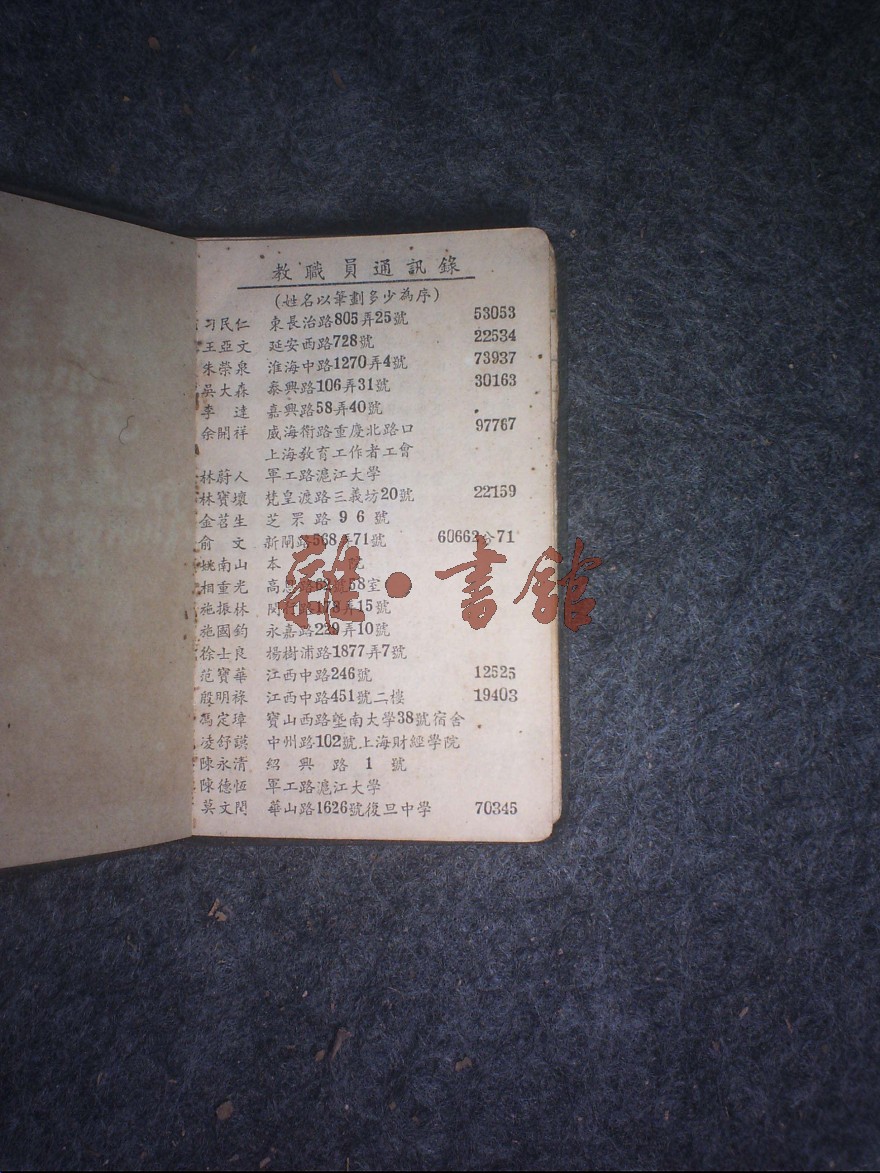 教職員通訊錄
(姓名以筆劃多少為序)
刁民仁 東長治路805弄25號 53053
王亞文 延安西路728號 22534
朱榮泉 淮海中路1270弄4號 73937
吳大森 泰興路106弄31號 30163
李達 嘉興路58弄40號
余開祥 威海衛路重慶北路口 97767
上海教育工作者工會
林蔚人 軍工路滬江大學
林寶壞 梵皇渡路三義坊20號 22159
金莒生 芝罘路96號
俞文 新閘路568弄71號 60662分71
姚南山 本院
相重光 高恩路62號58室
施振林 閔行路178弄15號
施國鈞 永嘉路229弄10號
徐士良 楊樹浦路1877弄7號
范寶華 江西中路246號 12525
殷明祿 江西中路451號二樓 19403
馮定璋 寶山西路暨南大學38號宿舍
凌舒謨 中州路102號上海財經學院
陳永清 紹興路1號
陳德恆 軍工路滬江大學
莫文閔 華山路1626號復旦中學 70345
雜·書館